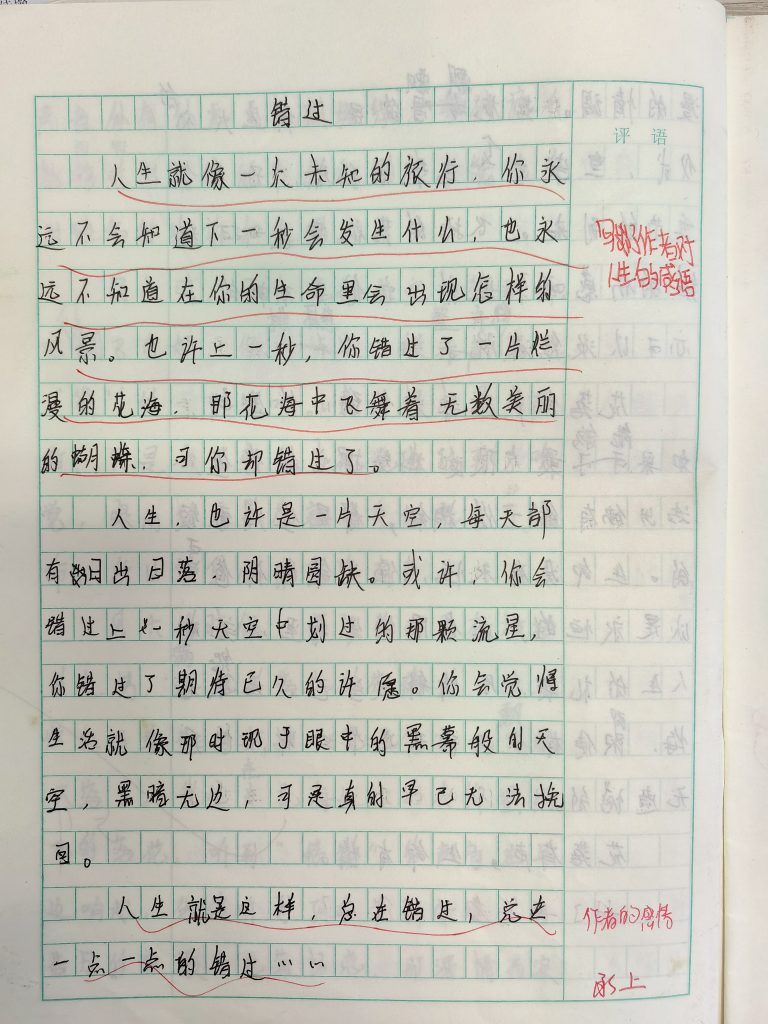 错过
评语
人生就像一次未知的旅行，你永
远不会知道下一秒会发生什么，也永
远不知道在你的生命里会出现怎样的
风景。也许上一秒，你错过了一片烂
漫的花海，那花海中飞舞着无数美丽
的蝴蝶，可你却错过了。
人生，也许是一片天空，每天都
有日出日落，阴晴圆缺。或许，你会
错过上一秒天空中划过的那颗流星，
你错过了期待已久的许愿。你会觉得
生活就像那时现于眼中的黑幕般的天
空，黑暗无边，可是真的早已无法挽
回。
人生就是这样，总在错过，总是
一点一点的错过……
作者对
人生的感悟
作者的感情
承上